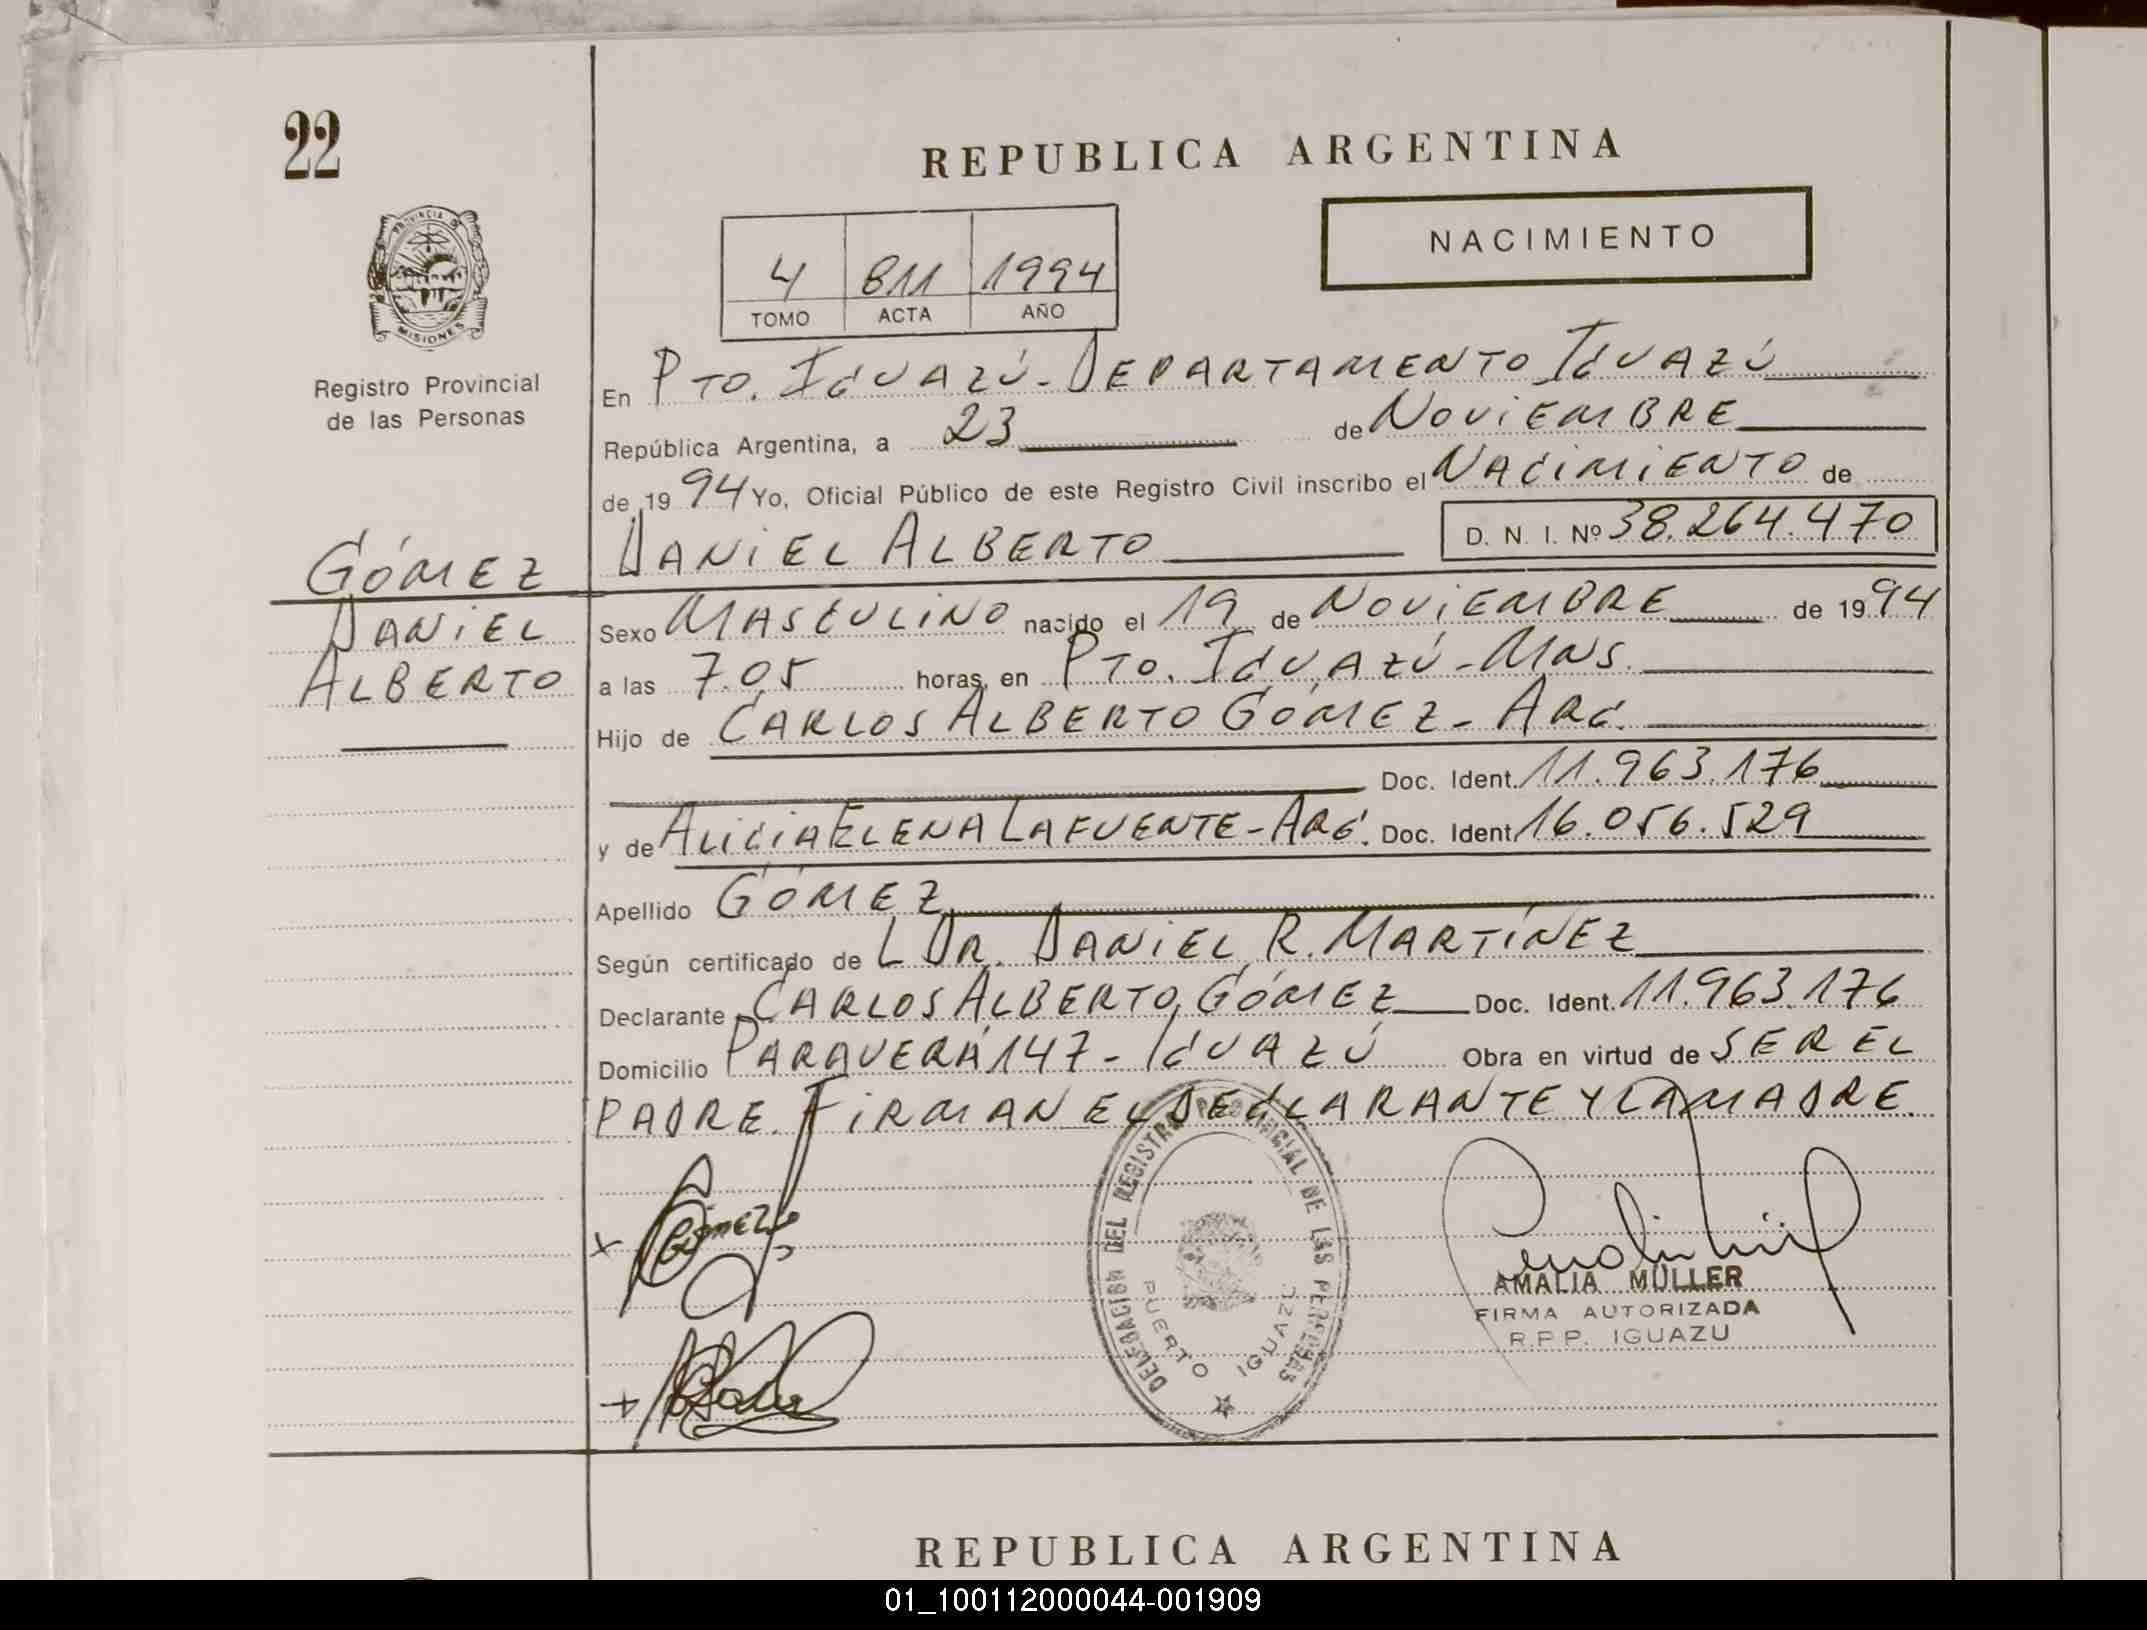 22
REPUBLICA ARGENTINA
PROVINCIA DE
MISIONES
Registro Provincial
de las Personas
NACIMIENTO
4 811 1994
TOMO ACTA AÑO
En PTO. IGUAZÚ - DEPARTAMENTO IGUAZÚ
República Argentina, a 23 de NOVIEMBRE
de 1994 Yo, Oficial Público de este Registro Civil inscribo el NACIMIENTO de
DANIEL ALBERTO D. N. I. Nº 38.264.470
GÓMEZ
DANIEL
ALBERTO
Sexo MASCULINO nacido el 19 de NOVIEMBRE de 1994
a las 7.05 horas, en PTO. IGUAZÚ - MNS.
Hijo de CARLOS ALBERTO GÓMEZ - ARG.
Doc. Ident. 11.963.176
y de ALICIA ELENA LAFUENTE - ARG. Doc. Ident. 16.056.529
Apellido GÓMEZ
Según certificado de L DR. DANIEL R. MARTÍNEZ
Declarante CARLOS ALBERTO GÓMEZ Doc. Ident. 11.963.176
Domicilio 147 - IGUAZÚ Obra en virtud de SER EL
PADRE. FIRMAN EL DECLARANTE Y LA MADRE.
GÓMEZ
DELEGACION DEL REGISTRO PROVINCIAL DE LAS PERSONAS
PUERTO IGUAZU
AMALIA MÜLLER
FIRMA AUTORIZADA
R.P.P. IGUAZU
REPUBLICA ARGENTINA
01_100112000044-001909